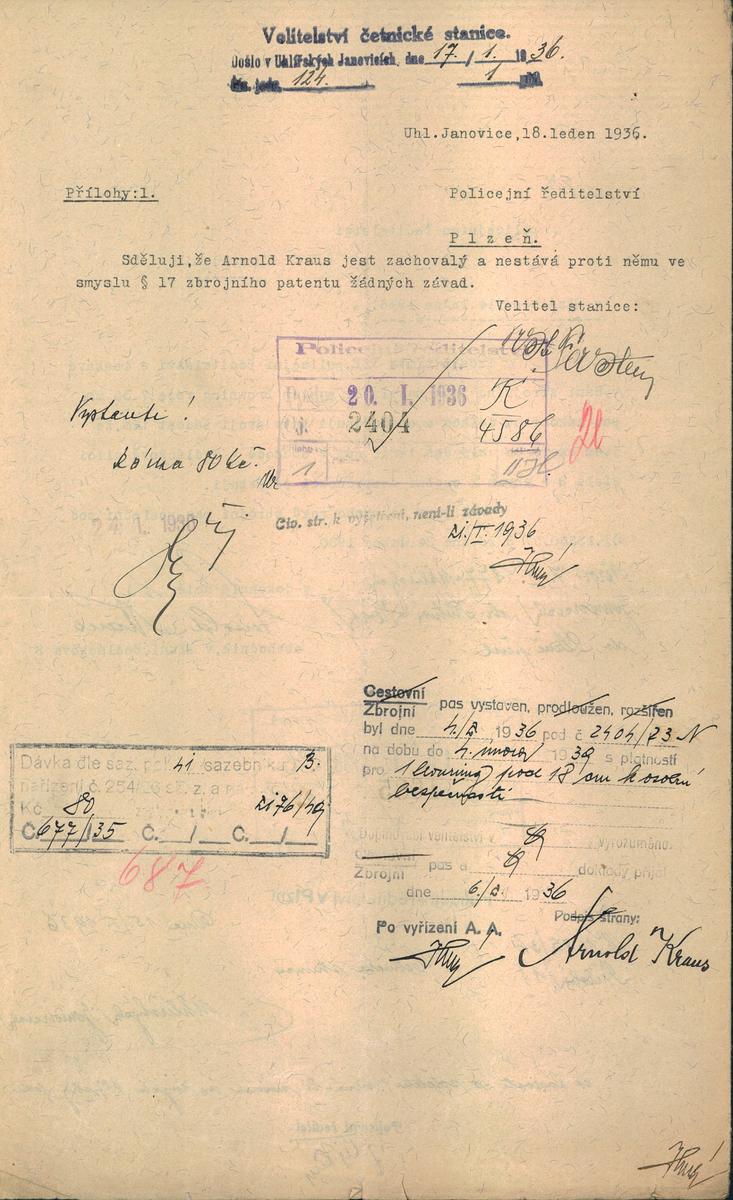 Velitelství četnické stanice.
Došlo v Uhlířských Janovicích, dne 17./1. 1936.
Čís. jedn. 124. 1
Uhl.Janovice,18.leden 1936.
Přílohy:1.
Policejní ředitelství
Plzeň.
Sděluji,že Arnold Kraus jest zachovalý a nestává proti němu ve
smyslu § 17 zbrojního patentu žádných závad.
Velitel stanice:
Policejní ředitelství
20. I. 1936
K
2404
4586
1
Vystaviti!
80 Kč.
Civ. str. k vyřízení, není-li závady
21./I. 1936
Cestovní
Zbrojní pas vystaven, prodloužen, rozšířen
byl dne 4./2. 1936 pod č 2404/23 N
na dobu do 4. února 1939 s platností
pro 1 browning pod 18 cm k osobní
bezpečnosti
Dávka dle saz. pol. sazebníku B.
nařízení č. 254/26 sb. z. a n.
Kč 80
Č. 677/35 Č. / C. /
687
velitelství v vyrozuměno.
Cestovní
Zbrojní pas a doklady přijal
dne 6./2. 1936
Po vyřízení A. A.
Podpis strany:
Arnold Kraus